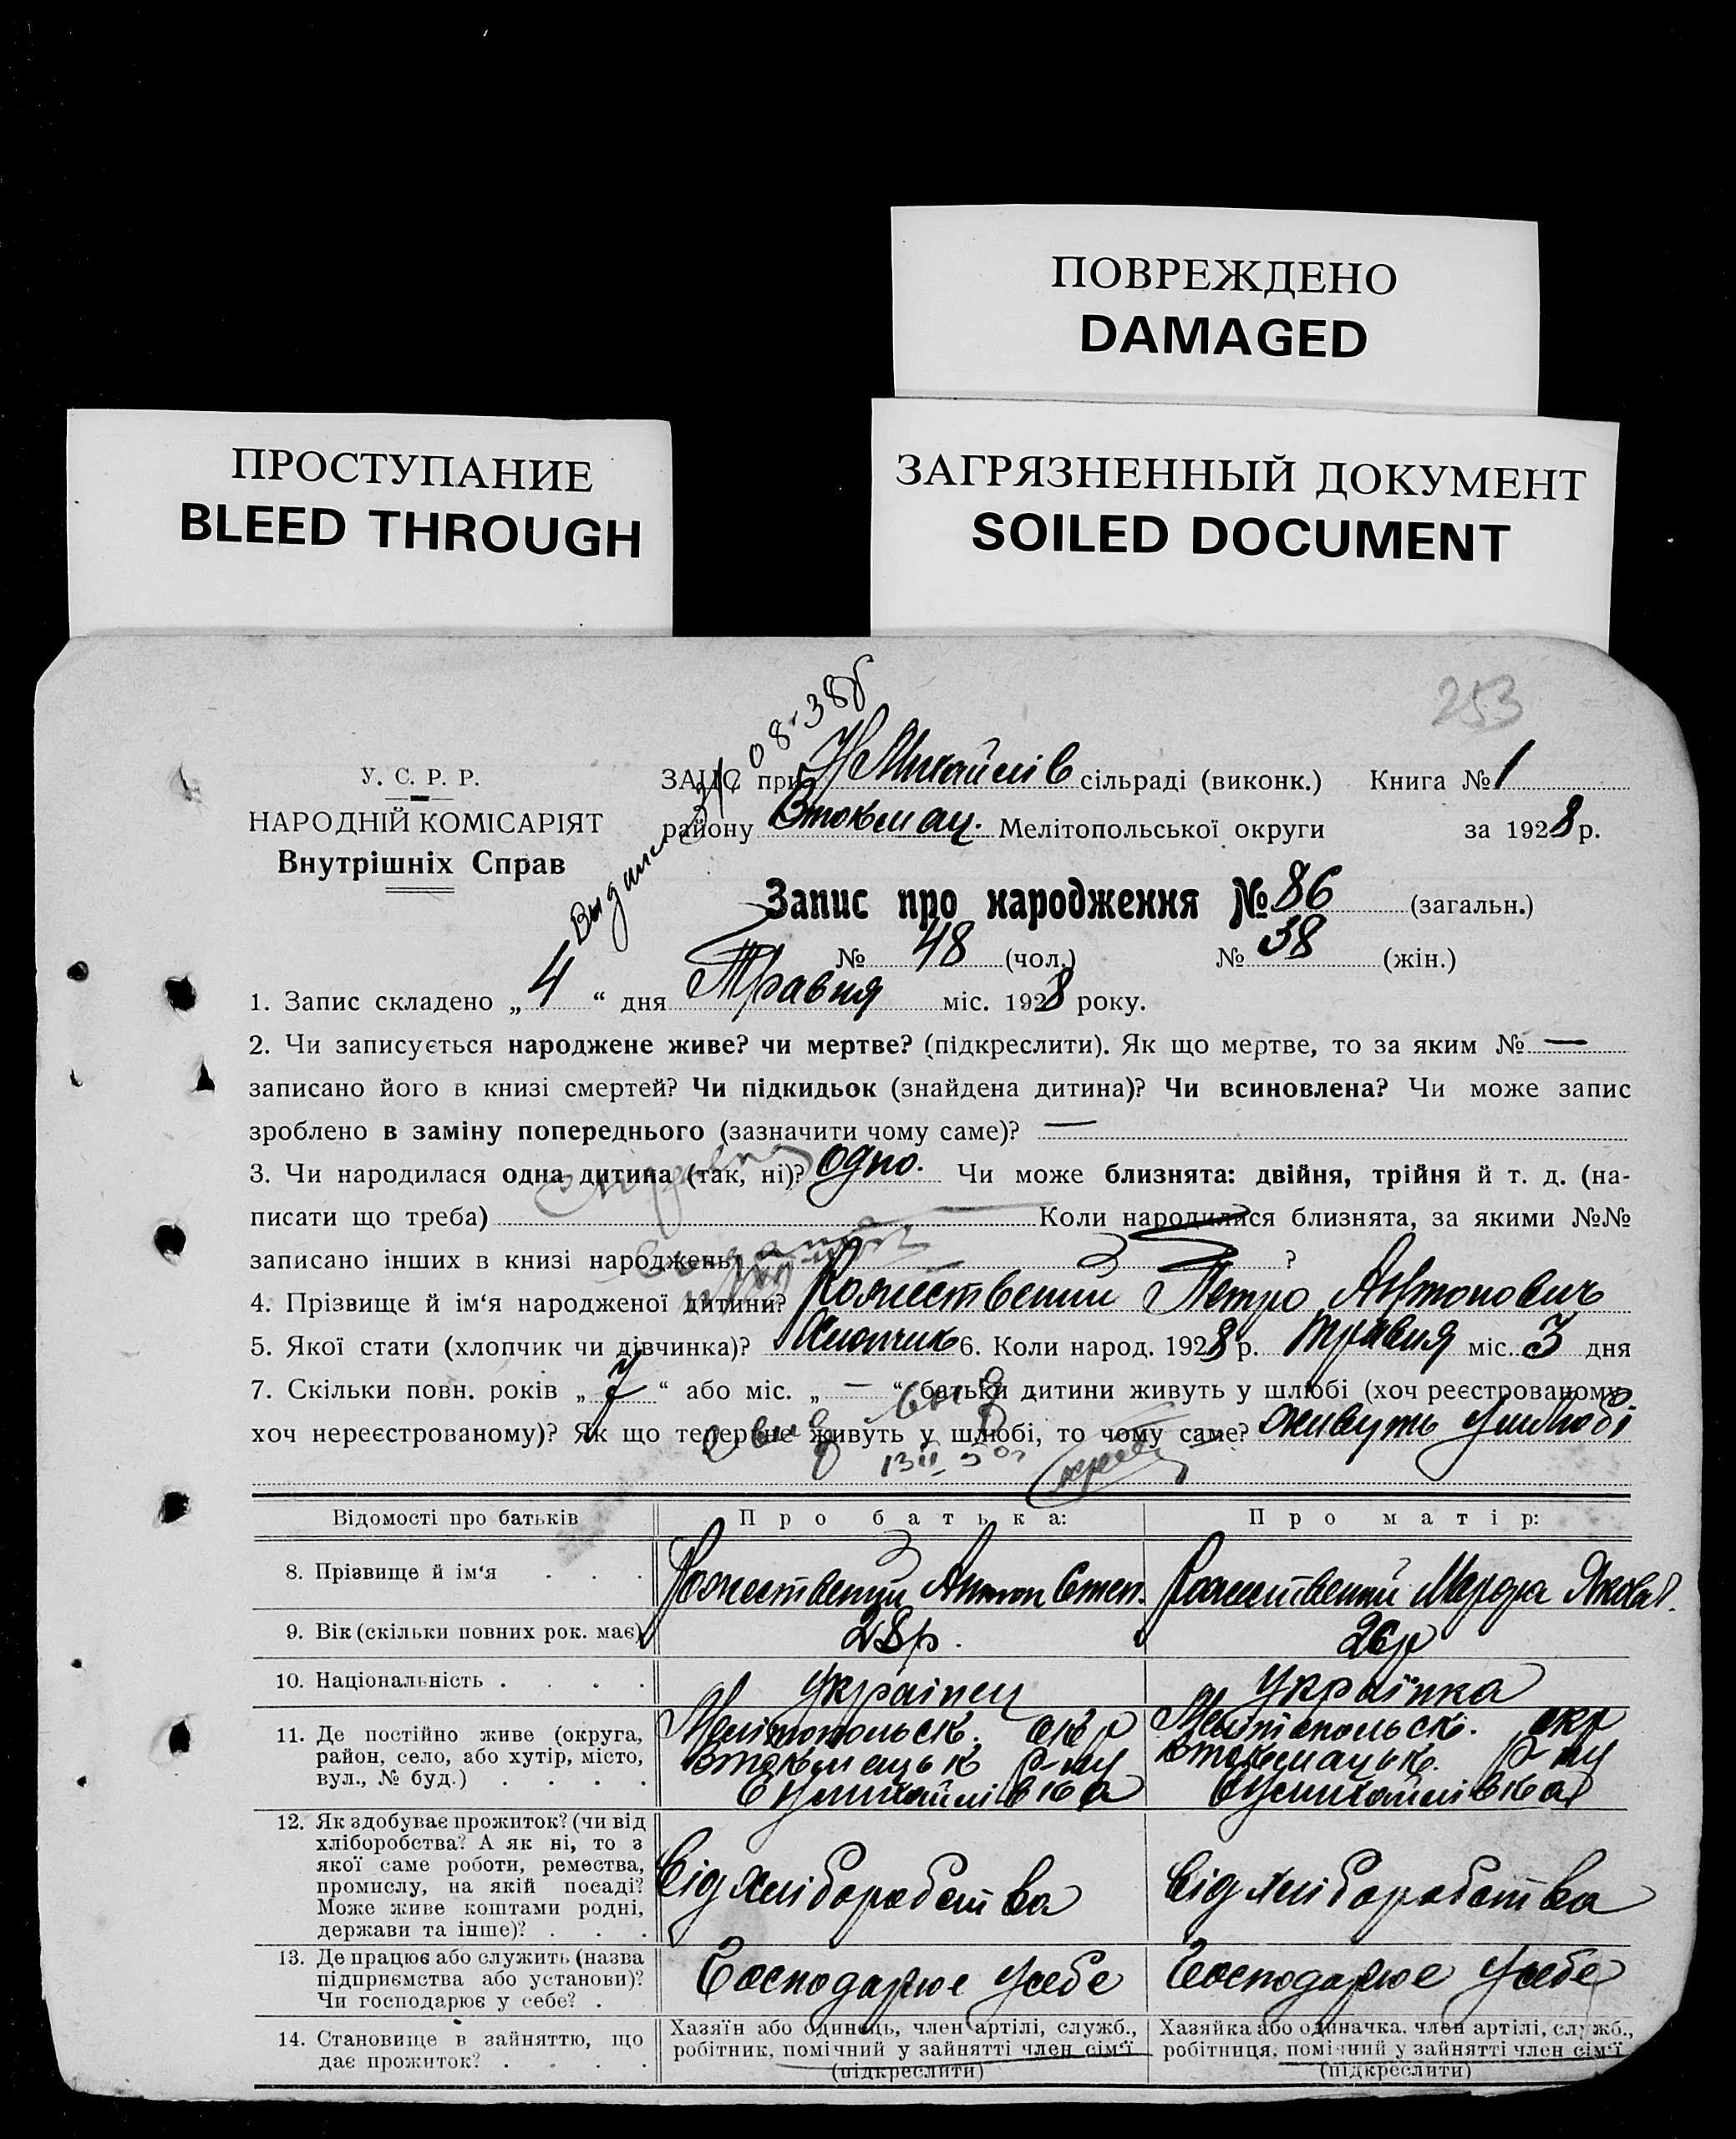 ПОВРЕЖДЕНО
DAMAGED
ПРОСТУПАНИЕ
BLEED THROUGH
ЗАГРЯЗНЕННЫЙ ДОКУМЕНТ
SOILED DOCUMENT
253
У. С. Р. Р.
НАРОДНІЙ КОМІСАРІЯТ
Внутрішніх Справ
ЗАЦС при сільраді (виконк.) Книга № 1
району Втокмац. Мелітопольської округи за 1928 р.
Запис про народження № 86 (загальн.)
№ 48 (чол.) № 38 (жін.)
1. Запис складено „ 4 “ дня Травня міс. 1928 року.
2. Чи записується народжене живе? чи мертве? (підкреслити). Як що мертве, то за яким № —
записано його в книзі смертей? Чи підкидьок (знайдена дитина)? Чи всиновлена? Чи може запис
зроблено в заміну попереднього (зазначити чому саме)? —
3. Чи народилася одна дитина (так, ні)? одно. Чи може близнята: двійня, трійня й т. д. (на-
писати що треба) Коли народилися близнята, за якими №№
записано інших в книзі народжень ?
4. Прізвище й ім‘я народженої дитини? Рожествений Петро Антонович
5. Якої стати (хлопчик чи дівчинка)? Хлопчик 6. Коли народ. 1928 р. травня міс. 3 дня
7. Скільки повн. років „ 7 “ або міс. „ — “ батьки дитини живуть у шлюбі (хоч реєстрованому,
хоч нереєстрованому)? Як що тепер не живуть у шлюбі, то чому саме? живуть ушлюбі
Відомості про батьків
Про батька:
Про матір:
8. Прізвище й ім‘я
Рожественый Антон Степ.
Рожественый Марфа Яковл.
9. Вік (скільки повних рок. має)
28 р.
26 р
10. Національність
українец
українка
11. Де постійно живе (округа,
район, село, або хутір, місто,
вул., № буд.)
Мелітопольск. окр
Втокмацьк р-ну
Мелітопольск. окр
Втокмацьк. р-ну
12. Як здобуває прожиток? (чи від
хліборобства? А як ні, то з
якої саме роботи, ремества,
промислу, на якій посаді?
Може живе коштами родні,
держави та інше)?
Від хліборобства
Від хліборобства
13. Де працює або служить (назва
підприємства або установи)?
Чи господарює у себе?
Господарює усебе
Господарює усебе
14. Становище в зайняттю, що
дає прожиток?
Хазяїн або одинець, член артілі, служб.,
робітник, помічний у зайнятті член сім‘ї
(підкреслити)
Хазяйка або одиначка, член артілі, служб.,
робітниця, помічний у зайнятті член сім‘ї
(підкреслити)